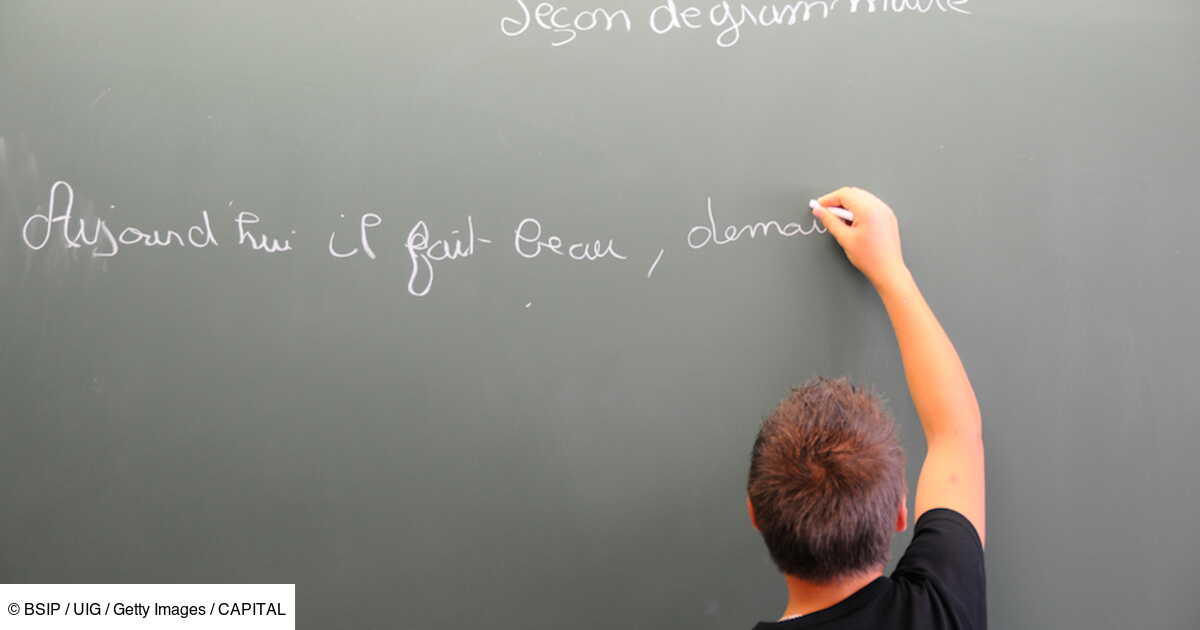 Leçon de grammaire
Aujourd'hui il fait beau, demai
© BSIP / UIG / Getty Images / CAPITAL